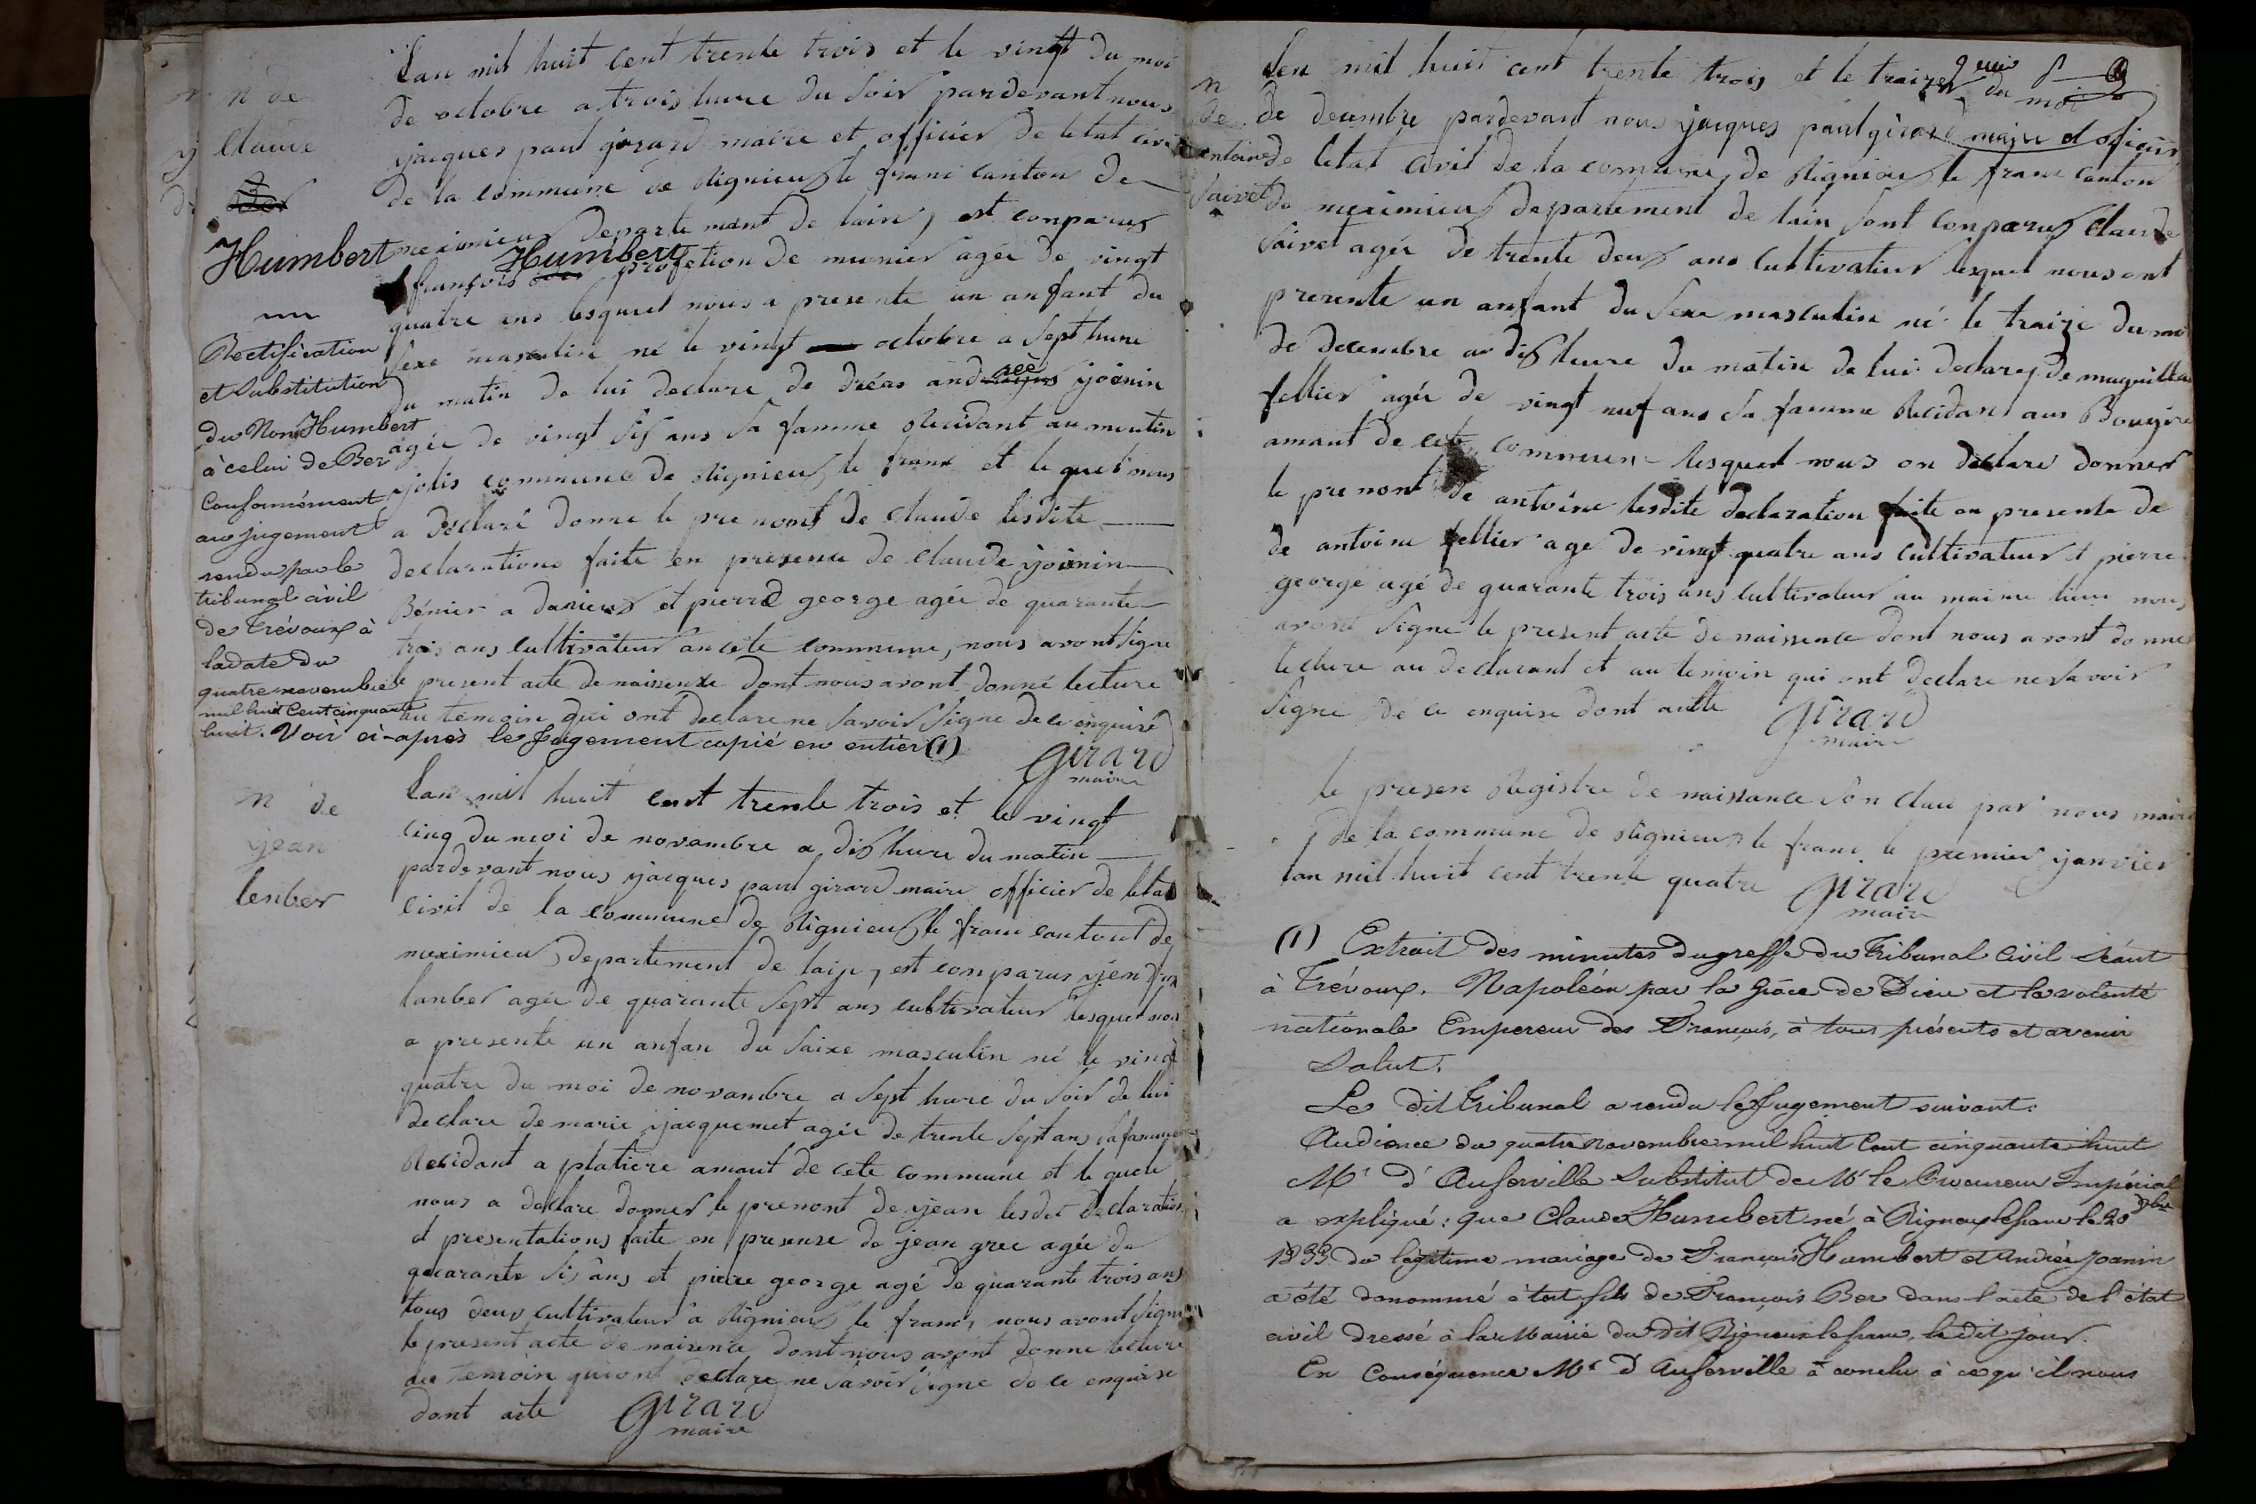 n de
Claude
Ber
Humbert
Rectification
et substitution
du Nom Humbert
à celui de Ber
conformément
au jugement
rendu par le
tribunal civil
de Trévoux à
la date du
quatre novembre
mil huit cent cinquante
huit. Voir ci-après le Jugement copié en entier (1)
Lan mil huit cent trente trois et le vingt du moi
de octobre a trois heure du soir pardevant nous
jacques paul girard maire et officier de letat civil
de la commune de Rignieux le franc canton de
meximieux departemant de lain, est conparus
françois Humbert profetion de munier agée de vingt
quatre ans lesquel nous a presente un anfant du
sexe masculin né le vingt octobre a sept hure
du matin de lui declare de dréas andréé joinin
agée de vingt sis ans sa famme Recidant au moulin
jolis commune de Rignieux le franc et le quel nous
a déclaré donne le pre nont de claude lesdite
declarations faite en presence de claude joinin
Bénier a danieux et pierre george agée de quarante
trois ans cultivateur an cete commune, nous avont signe
le present acte de naissence dont nous avont donné lecture
au temoin qui ont declare ne savoir signe de ce enquise
girard
maire
n de
jean
lenber
Lan mil huit cent trente trois et le vingt
cinq du moi de novambre a dis hure du matin
pardevant nous jacques paul girard maire officier de letat
civil de la commune de Rignieux le franc cantont de
meximieu departement de lain, est conparus jean
lanber agée de quarante sept ans cultivateur lesquel nous
a presente un anfan du saixe masculin né le vingt
quatre du moi de novambre a sept hure du soir de lui
declare de marie jacquemet agée de trente sept ans sa famme
Recidant a platiere amant de cete commune et le quele
nous a declare donner le prenont de jean lesdet declaration
et presentations faite en presense de jean grec agée de
quarante sis ans et pierre george agé de quarante trois ans
tous deux cultivateur a Rignieux le franc, nous avont signe
le present acte de naisence dont nous avont donne lecture
au temoin qui ont declare ne savoir signe de ce enquise
dont acte girard
maire
n
de
antoine
saivet
Len mil huit cent trente trois et le traize du moi
de decembre pardevant nous jacques paul girard maire et oficier
de letat civil de la comune de Rignieu le franc canton
de meximieux departement de lain sont conparus claude
saivet agée de trente deux ans cultivateur lesquel nous ont
presente un anfant du sexe masculin né le traize du moi
de decembre a dis heure du matin de lui declare de
fellier agée de vingt neuf ans sa famme Recidan aus
amant de cete commune lesquel nous on declare donner
le pre nont de antoine lesdite declaration faite en presente de
de antoine fellier age de vingt quatre ans cultivateur et pierre
george agé de quarante trois ans cultivateur au maime lieu nous
avont signe le present acte de naissence dont nous avont donne
lecture au declarant et au temoin qui ont declare ne savoir
signe de ce enquise dont acte girard
maire
le presen Registre de naissance son clau par nous maire
de la commune de Rignieux le franc le premier janvier
lan mil huit cent trente quatre girard
maire
(1) Extrait des minutes du greffe du Tribunal Civil séant
à Trévoux. Napoléon par la Grâce de Dieu et la volonté
nationale Empereur des Français, à tous présents et avenir
Salut.
Le dit Tribunal a rendu le Jugement suivant:
Audience du quatre novembre mil huit cent cinquante huit
Mr d'Auferville Substitut de Mr le Procureur Impérial
a expliqué: que Claude Humbert né à Rignieux le franc le 20 8bre
1833 du légitime mariage de François Humbert et Andrée Joanin
a été dénommé à tort fils de François Ber dans l'acte de l'état
civil dressé à la Mairie du dit Rignieux le franc, le dit jour.
En Conséquence Mr d'Auferville a conclu à ce qu'il nous